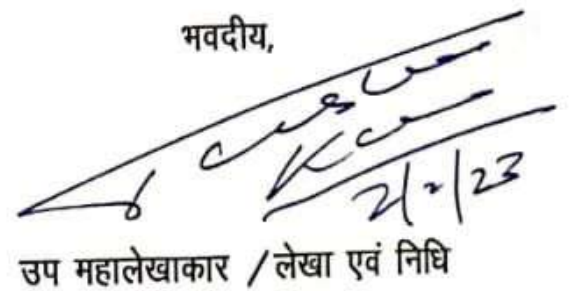 भवदीय,
2/2/23
उप महालेखाकार /लेखा एवं निधि